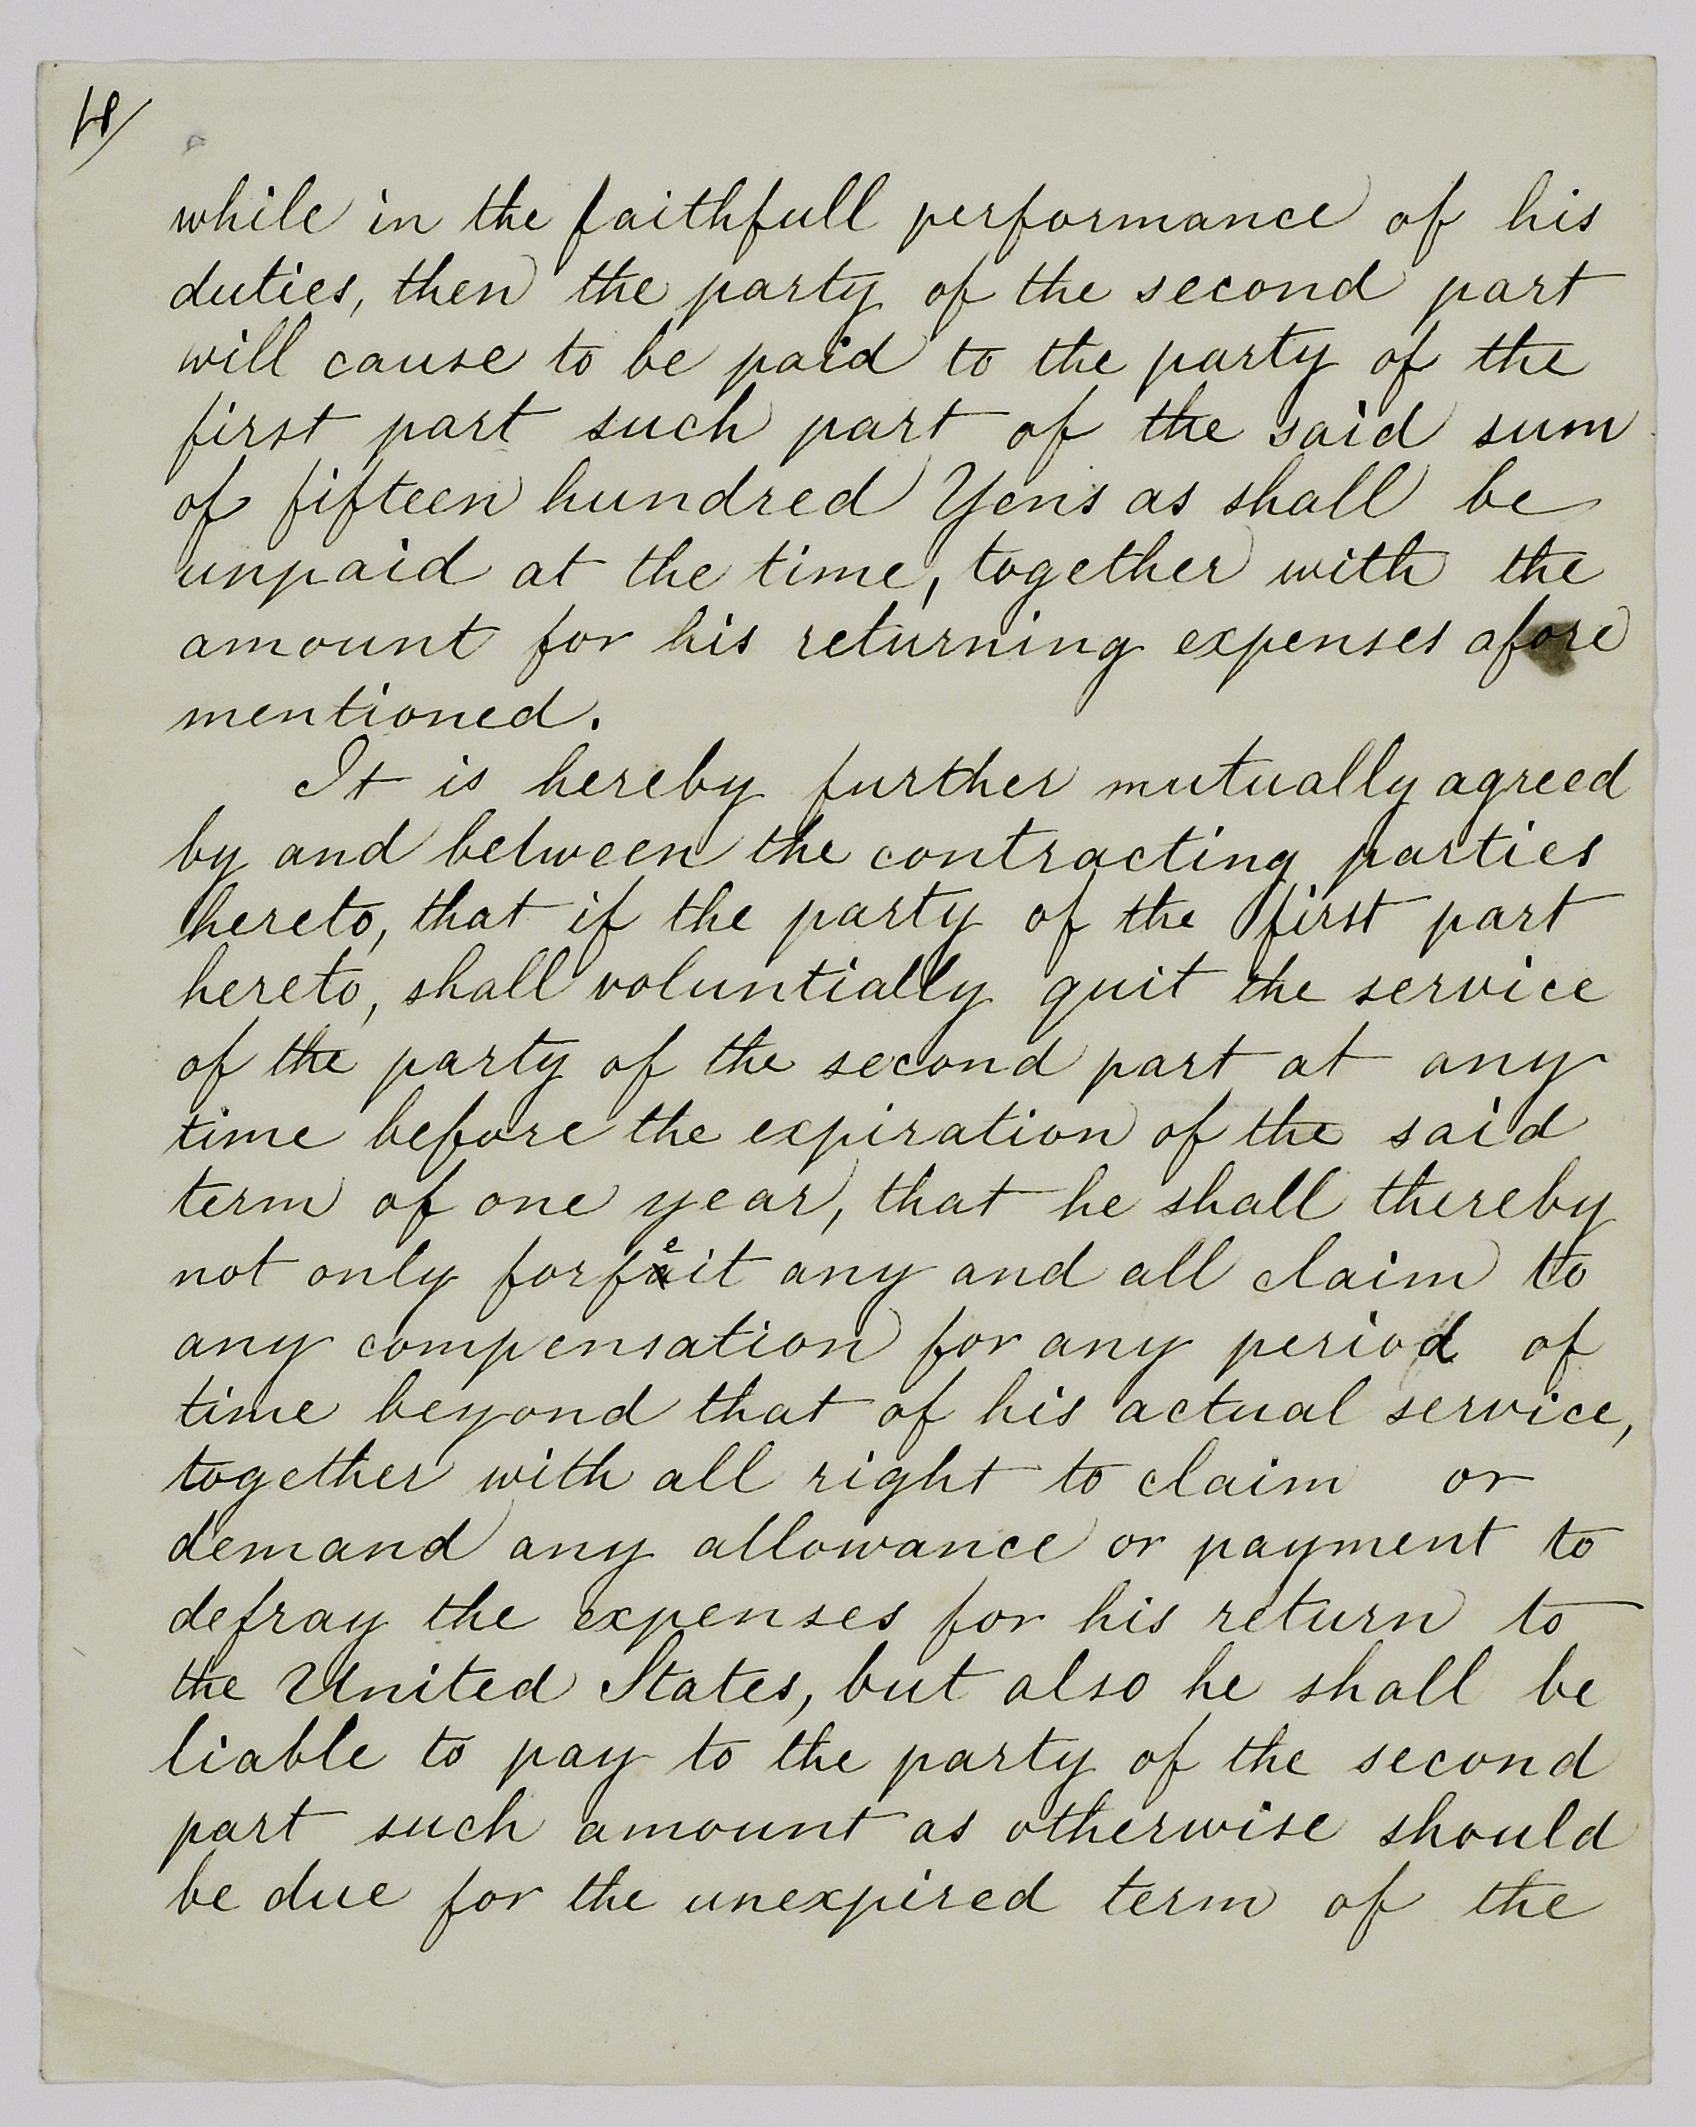 4/
while in the faithfull performance of his
duties, then the party of the second part
will cause to be paid to the party of the
first part such part of the said sum
of fifteen hundred Yens as shall be
unpaid at the time, together with the
amount for his returning expenses afore
mentioned.
It is hereby further mutually agreed
by and between the contracting parties
hereto, that if the party of the first part
hereto, shall voluntially quit the service
of the party of the second part at any
time before the expiration of the said
term of one year, that he shall thereby
not only forfeit any and all claim to
any compensation for any period of
time beyond that of his actual service,
together with all right to claim or
demand any allowance or payment to
defray the expenses for his return to
the United States, but also he shall be
liable to pay to the party of the second
part such amount as otherwise should
be due for the unexpired term of the